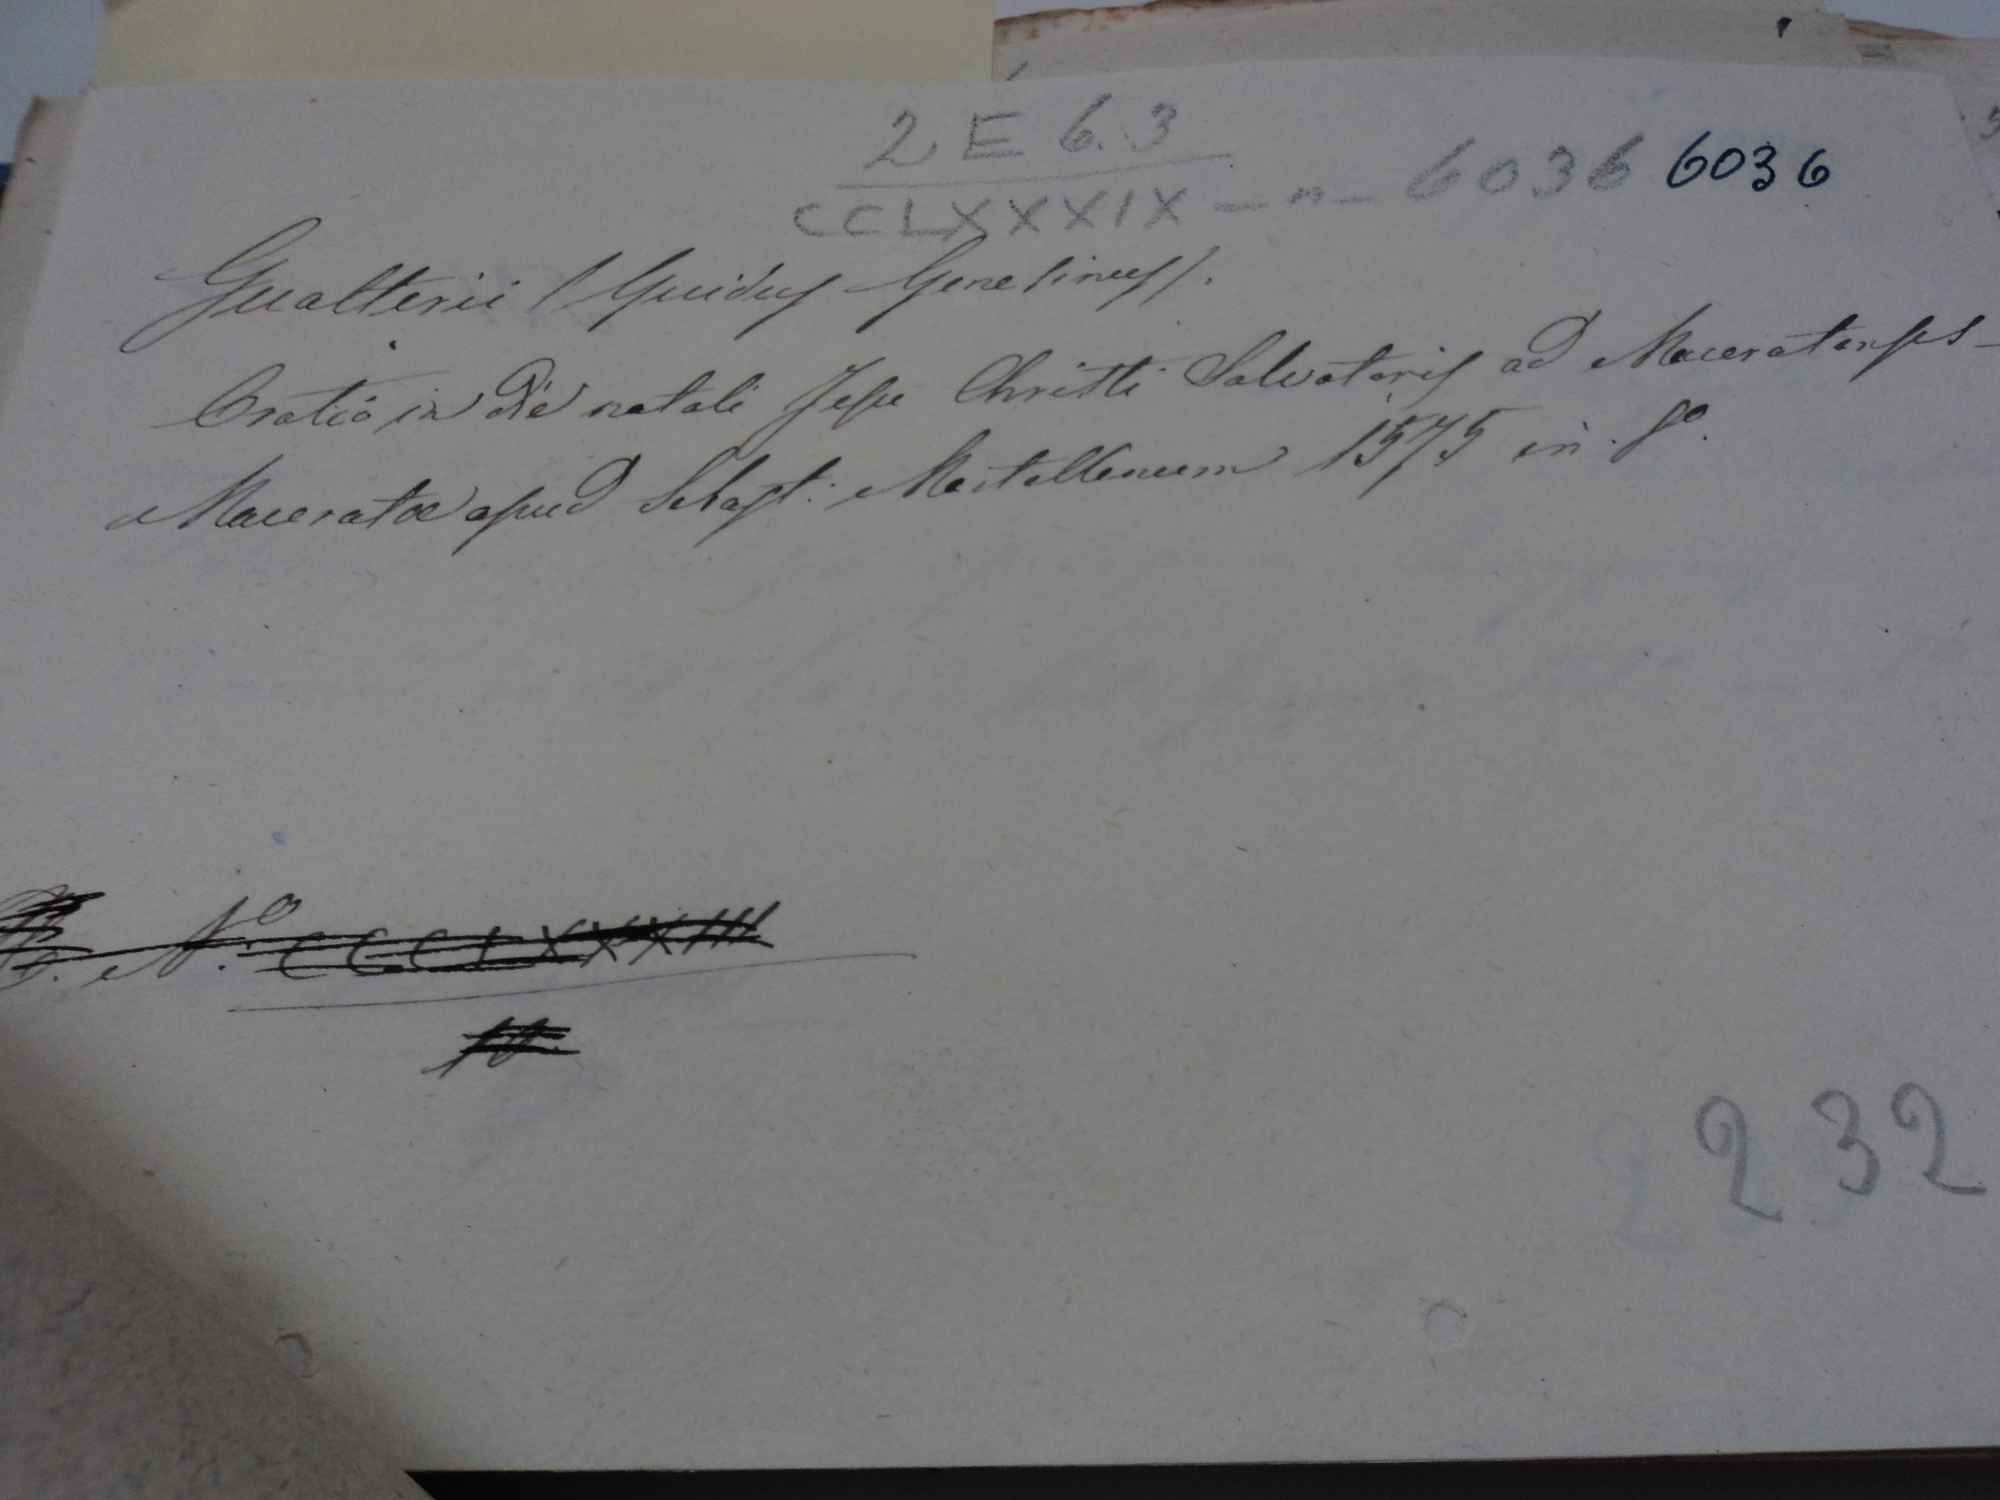 2 E 6.3
CCLXXXIX - n - 6036 6036
Gualterii (Guidus Genesinus).
Oratio in die natali Jesu Christi Salvatoris ad Maceratenses -
Maceratae apud Sebast. Martellinum 1575 in 8º.
Nº CCCLXXXIII
232